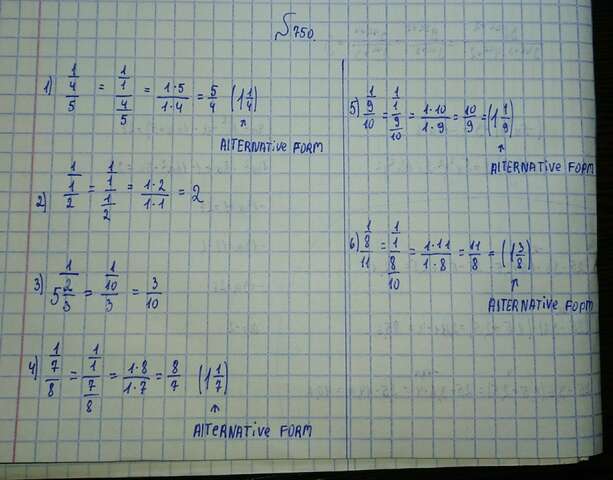 №750.
1) 1/(4/5) = (1/1)/(4/5) = (1·5)/(1·4) = 5/4 (1 1/4)
AlTERNATIVE FORM
2) 1/(1/2) = (1/1)/(1/2) = (1·2)/(1·1) = 2
3) 1/(5 2/3) = 1/(10/3) = 3/10
4) 1/(7/8) = (1/1)/(7/8) = (1·8)/(1·7) = 8/7 (1 1/7)
AlTERNATIVE FORM
5) 1/(9/10) = (1/1)/(9/10) = (1·10)/(1·9) = 10/9 = (1 1/9)
AlTERNATIVE FORM
6) 1/(8/11) = (1/1)/(8/10) = (1·11)/(1·8) = 11/8 = (1 3/8)
AlTERNATIVE FORM